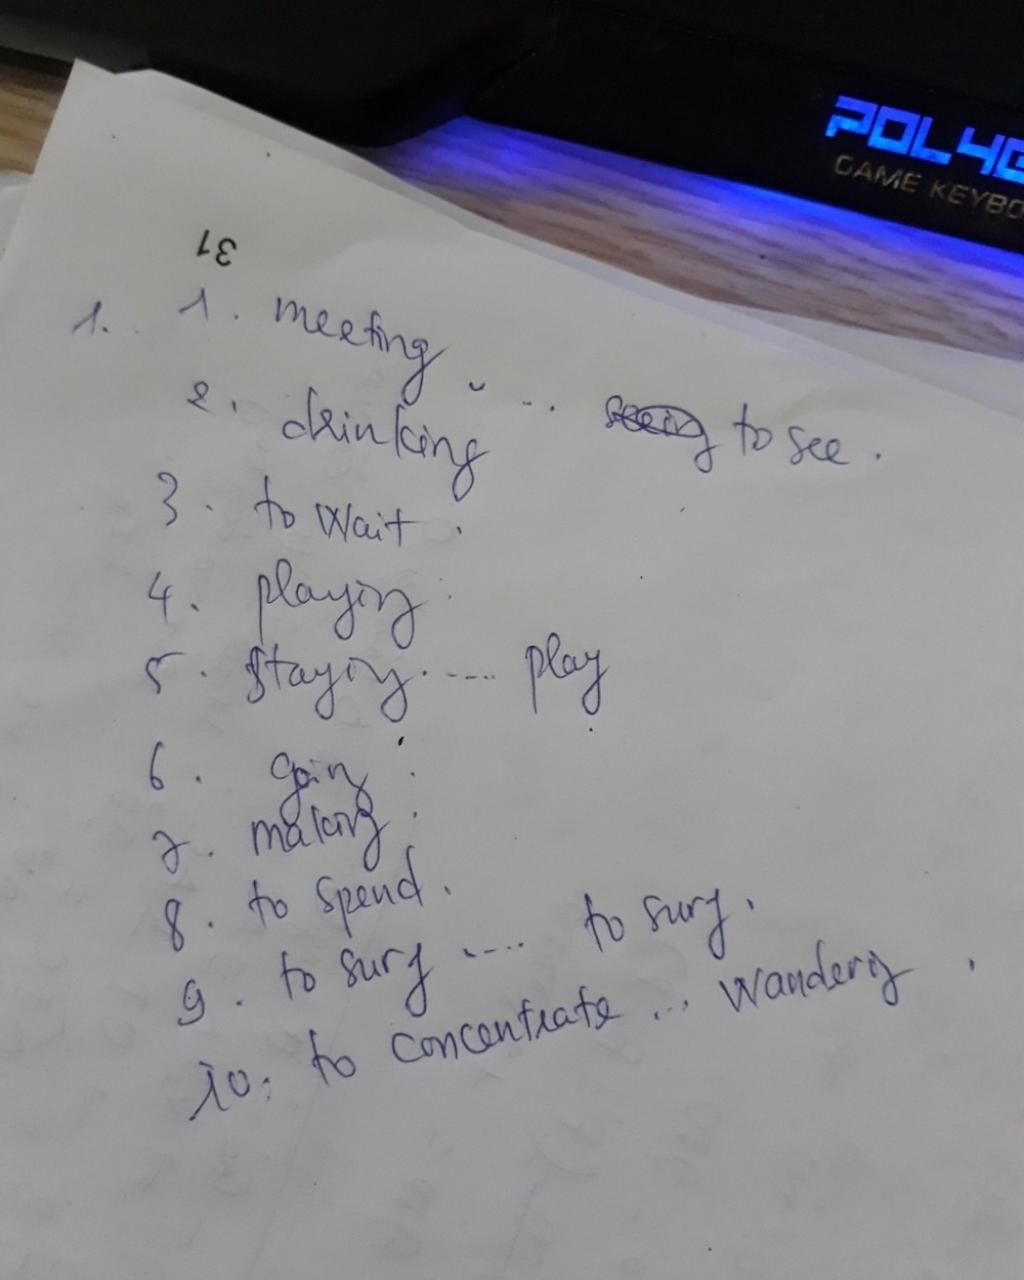 POLYG
GAME KEYBO
31
1. 1. meeting ... to see.
2. drinking
3. to wait.
4. playing.
5. staying .... play
6. going.
7. making.
8. to spend.
9. to surf .... to surf.
10. to concentrate ... wandering.